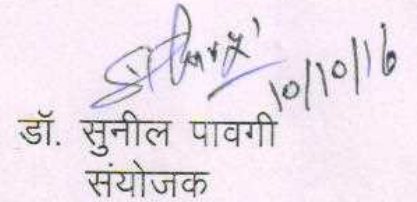 10/10/16
डॉ. सुनील पावगी
संयोजक